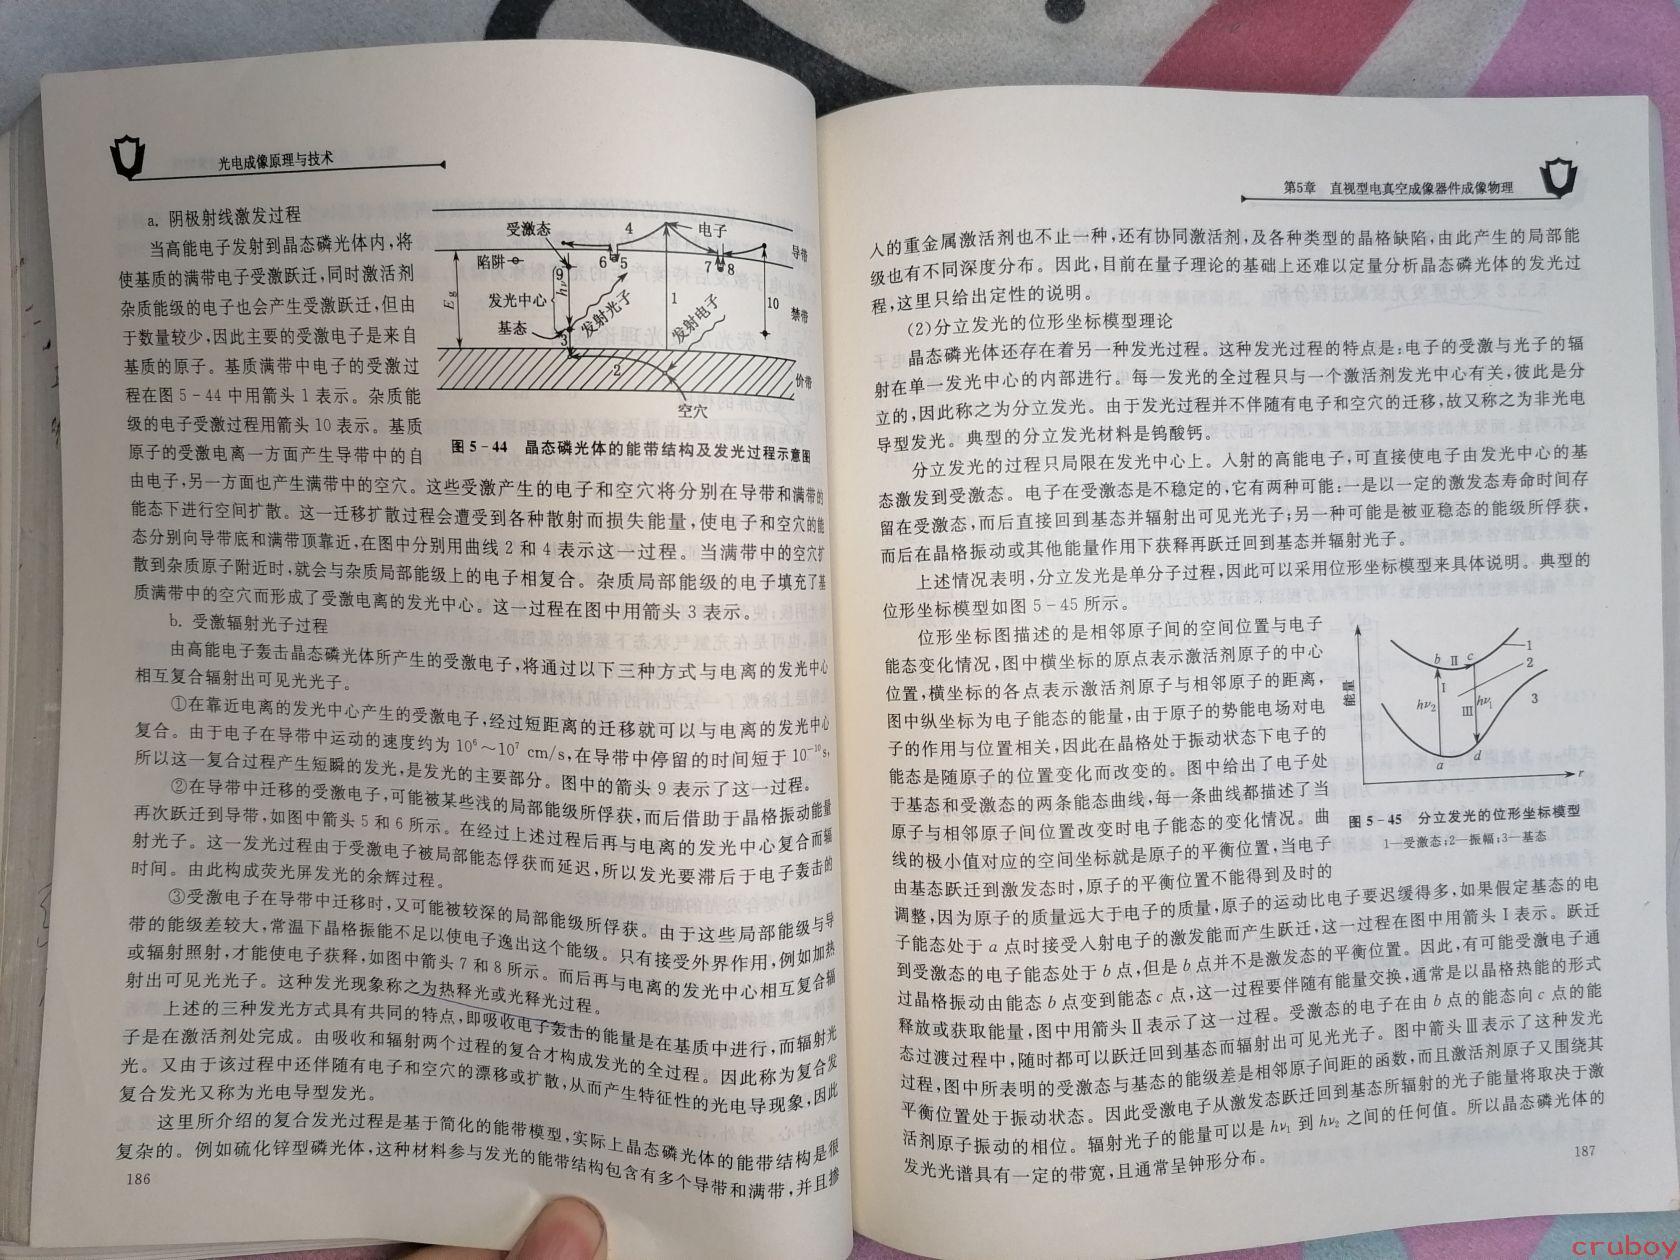 光电成像原理与技术
a. 阴极射线激发过程
当高能电子发射到晶态磷光体内,将
使基质的满带电子受激跃迁,同时激活剂
杂质能级的电子也会产生受激跃迁,但由
于数量较少,因此主要的受激电子是来自
基质的原子。基质满带中电子的受激过
程在图5-44中用箭头1表示。杂质能
级的电子受激过程用箭头10表示。基质
原子的受激电离一方面产生导带中的自
受激态
4
电子
导带
陷阱
6
5
7
8
9
hν
E_g
发光中心
发射光子
1
发射电子
10
禁带
基态
3
2
价带
空穴
图5-44 晶态磷光体的能带结构及发光过程示意图
由电子,另一方面也产生满带中的空穴。这些受激产生的电子和空穴将分别在导带和满带的
能态下进行空间扩散。这一迁移扩散过程会遭受到各种散射而损失能量,使电子和空穴的能
态分别向导带底和满带顶靠近,在图中分别用曲线2和4表示这一过程。当满带中的空穴扩
散到杂质原子附近时,就会与杂质局部能级上的电子相复合。杂质局部能级的电子填充了基
质满带中的空穴而形成了受激电离的发光中心。这一过程在图中用箭头3表示。
b. 受激辐射光子过程
由高能电子轰击晶态磷光体所产生的受激电子,将通过以下三种方式与电离的发光中心
相互复合辐射出可见光光子。
①在靠近电离的发光中心产生的受激电子,经过短距离的迁移就可以与电离的发光中心
复合。由于电子在导带中运动的速度约为10⁶～10⁷ cm/s,在导带中停留的时间短于10⁻¹⁰s,
所以这一复合过程产生短瞬的发光,是发光的主要部分。图中的箭头9表示了这一过程。
②在导带中迁移的受激电子,可能被某些浅的局部能级所俘获,而后借助于晶格振动能量
再次跃迁到导带,如图中箭头5和6所示。在经过上述过程后再与电离的发光中心复合而辐
射光子。这一发光过程由于受激电子被局部能态俘获而延迟,所以发光要滞后于电子轰击的
时间。由此构成荧光屏发光的余辉过程。
③受激电子在导带中迁移时,又可能被较深的局部能级所俘获。由于这些局部能级与导
带的能级差较大,常温下晶格振能不足以使电子逸出这个能级。只有接受外界作用,例如加热
或辐射照射,才能使电子获释,如图中箭头7和8所示。而后再与电离的发光中心相互复合辐
射出可见光光子。这种发光现象称之为热释光或光释光过程。
上述的三种发光方式具有共同的特点,即吸收电子轰击的能量是在基质中进行,而辐射光
子是在激活剂处完成。由吸收和辐射两个过程的复合才构成发光的全过程。因此称为复合发
光。又由于该过程中还伴随有电子和空穴的漂移或扩散,从而产生特征性的光电导现象,因此
复合发光又称为光电导型发光。
这里所介绍的复合发光过程是基于简化的能带模型,实际上晶态磷光体的能带结构是很
复杂的。例如硫化锌型磷光体,这种材料参与发光的能带结构包含有多个导带和满带,并且掺
186
第5章 直视型电真空成像器件成像物理
入的重金属激活剂也不止一种,还有协同激活剂,及各种类型的晶格缺陷,由此产生的局部能
级也有不同深度分布。因此,目前在量子理论的基础上还难以定量分析晶态磷光体的发光过
程,这里只给出定性的说明。
(2)分立发光的位形坐标模型理论
晶态磷光体还存在着另一种发光过程。这种发光过程的特点是:电子的受激与光子的辐
射在单一发光中心的内部进行。每一发光的全过程只与一个激活剂发光中心有关,彼此是分
立的,因此称之为分立发光。由于发光过程并不伴随有电子和空穴的迁移,故又称之为非光电
导型发光。典型的分立发光材料是钨酸钙。
分立发光的过程只局限在发光中心上。入射的高能电子,可直接使电子由发光中心的基
态激发到受激态。电子在受激态是不稳定的,它有两种可能:一是以一定的激发态寿命时间存
留在受激态,而后直接回到基态并辐射出可见光光子;另一种可能是被亚稳态的能级所俘获,
而后在晶格振动或其他能量作用下获释再跃迁回到基态并辐射光子。
上述情况表明,分立发光是单分子过程,因此可以采用位形坐标模型来具体说明。典型的
位形坐标模型如图5-45所示。
位形坐标图描述的是相邻原子间的空间位置与电子
能态变化情况,图中横坐标的原点表示激活剂原子的中心
位置,横坐标的各点表示激活剂原子与相邻原子的距离,
图中纵坐标为电子能态的能量,由于原子的势能电场对电
子的作用与位置相关,因此在晶格处于振动状态下电子的
能态是随原子的位置变化而改变的。图中给出了电子处
于基态和受激态的两条能态曲线,每一条曲线都描述了当
原子与相邻原子间位置改变时电子能态的变化情况。曲
线的极小值对应的空间坐标就是原子的平衡位置,当电子
由基态跃迁到激发态时,原子的平衡位置不能得到及时的
能量
b Ⅱ c
1
2
3
Ⅰ
hν₂
Ⅲ
hν₁
a
d
r
图5-45 分立发光的位形坐标模型
1—受激态;2—振幅;3—基态
调整,因为原子的质量远大于电子的质量,原子的运动比电子要迟缓得多,如果假定基态的电
子能态处于a点时接受入射电子的激发能而产生跃迁,这一过程在图中用箭头Ⅰ表示。跃迁
到受激态的电子能态处于b点,但是b点并不是激发态的平衡位置。因此,有可能受激电子通
过晶格振动由能态b点变到能态c点,这一过程要伴随有能量交换,通常是以晶格热能的形式
释放或获取能量,图中用箭头Ⅱ表示了这一过程。受激态的电子在由b点的能态向c点的能
态过渡过程中,随时都可以跃迁回到基态而辐射出可见光光子。图中箭头Ⅲ表示了这种发光
过程,图中所表明的受激态与基态的能级差是相邻原子间距的函数,而且激活剂原子又围绕其
平衡位置处于振动状态。因此受激电子从激发态跃迁回到基态所辐射的光子能量将取决于激
活剂原子振动的相位。辐射光子的能量可以是hν₁到hν₂之间的任何值。所以晶态磷光体的
发光光谱具有一定的带宽,且通常呈钟形分布。
187
cruboy